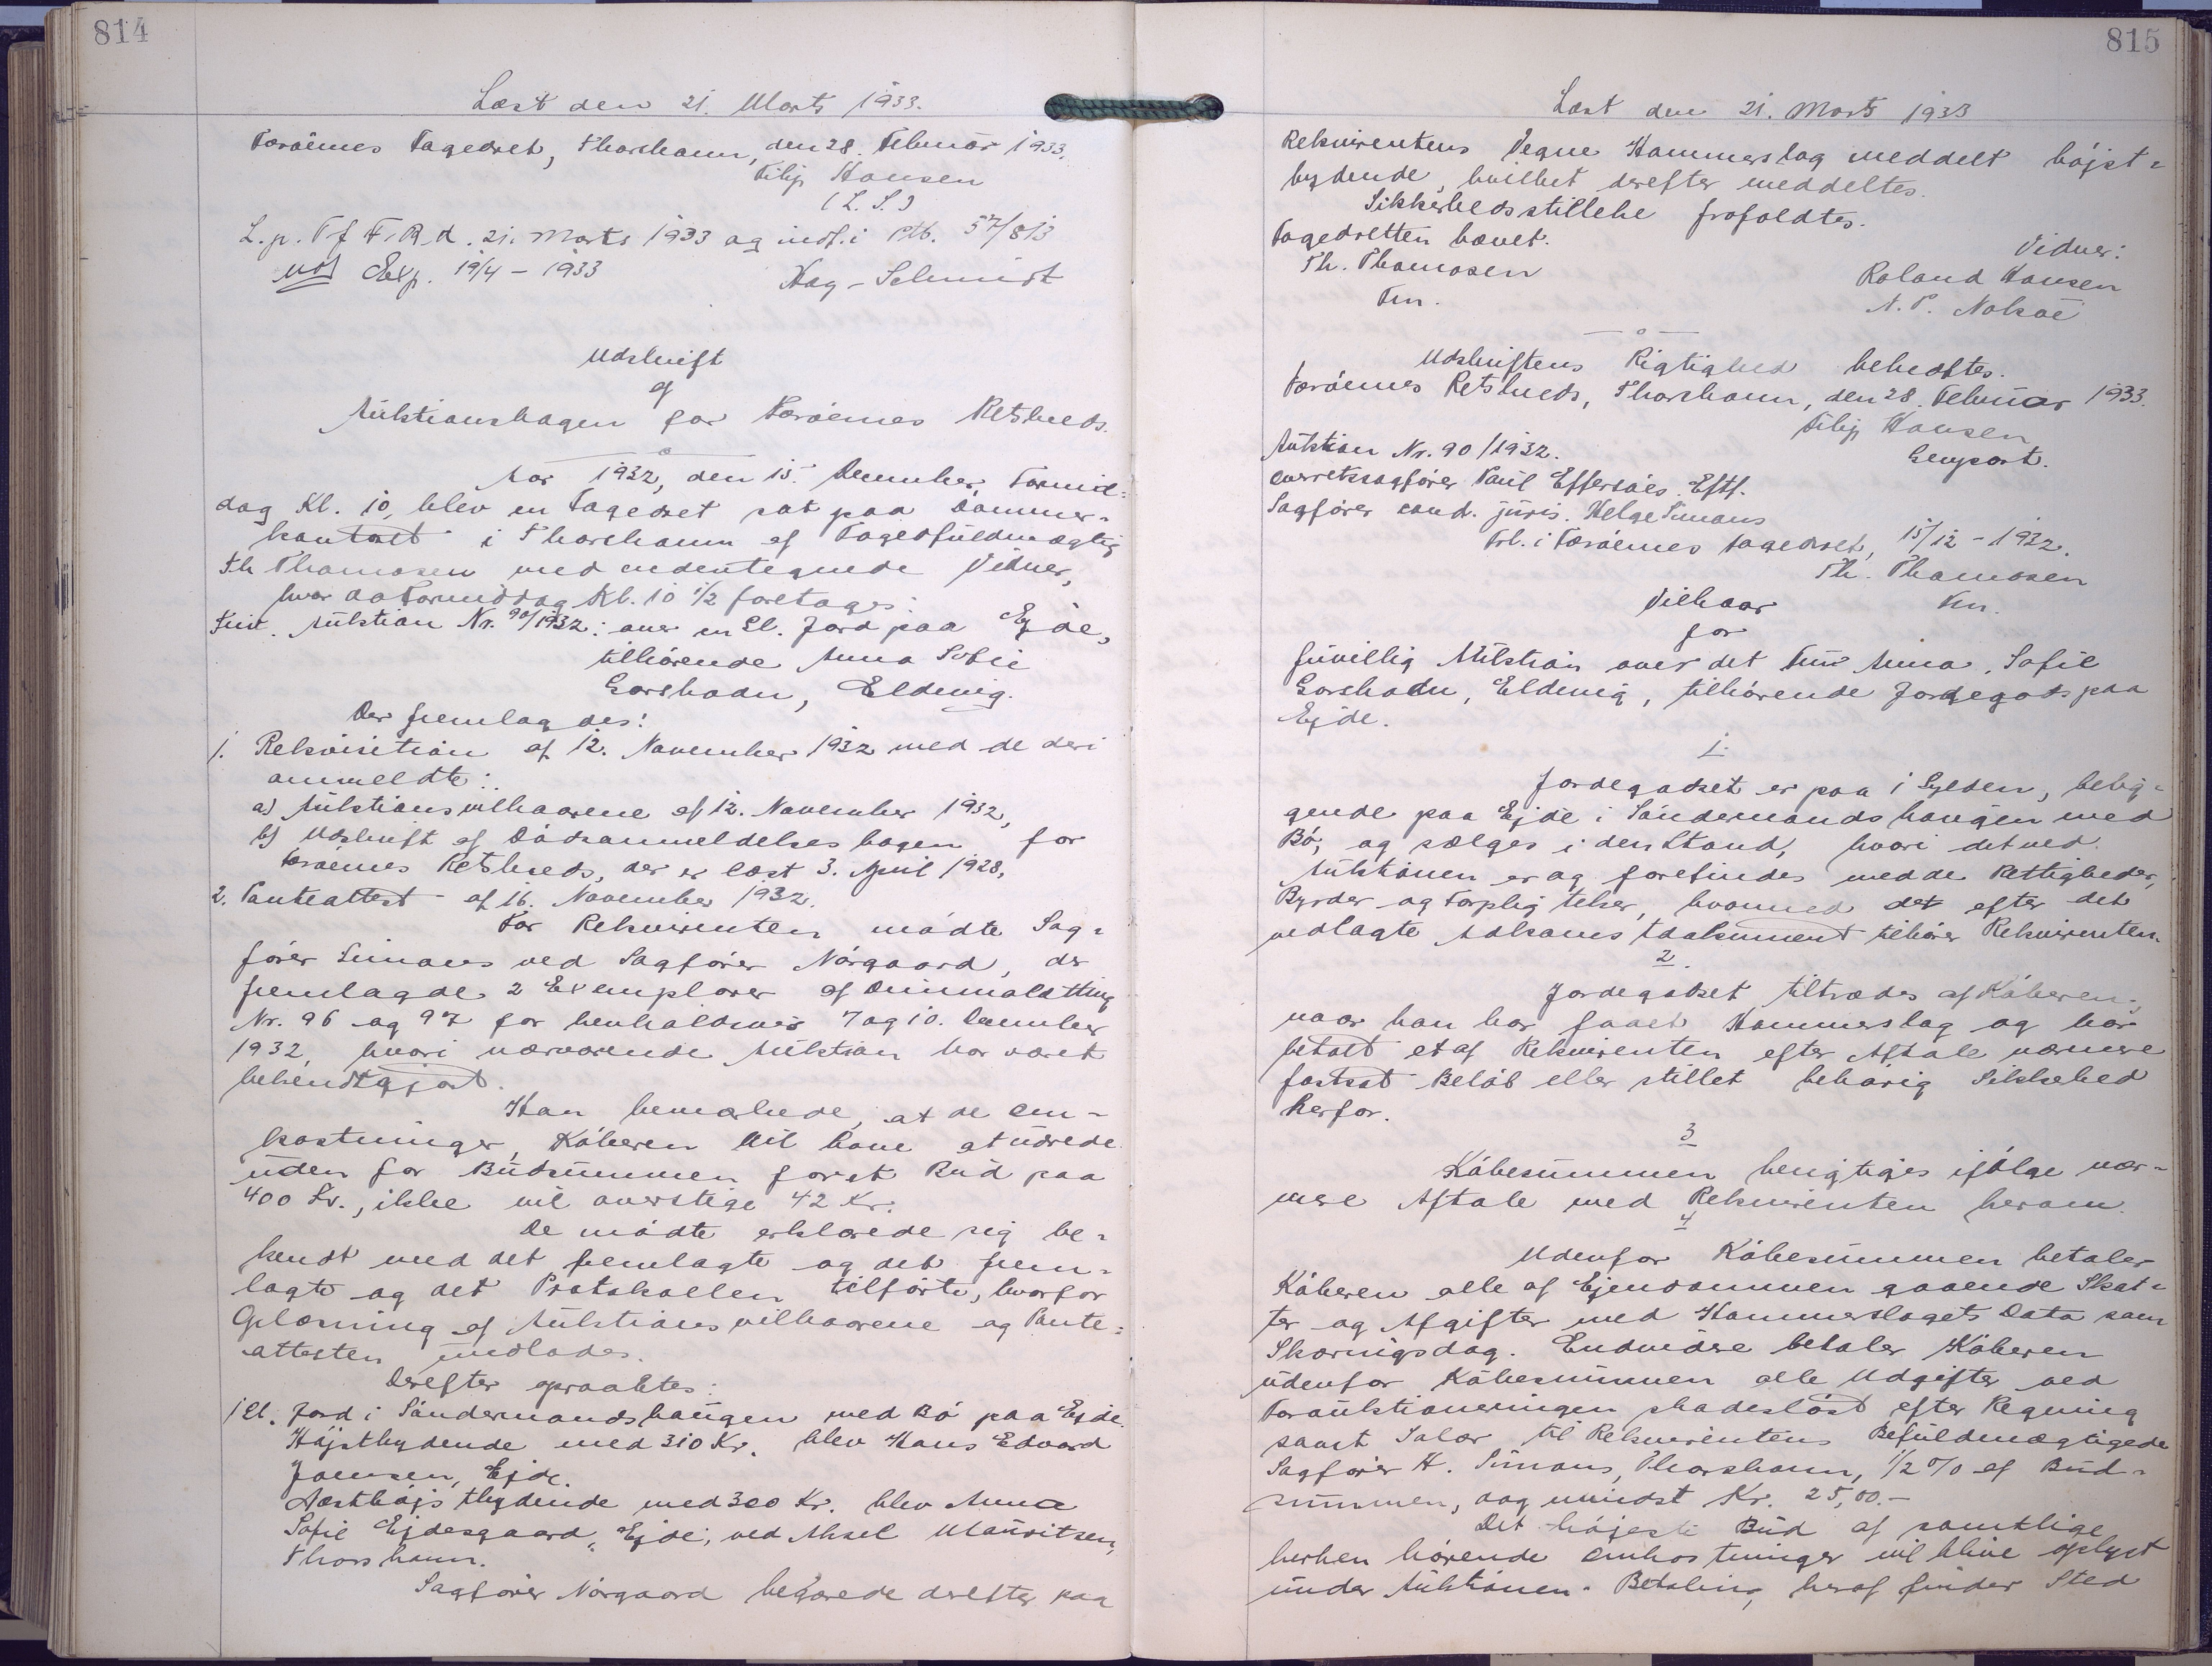 814
Læst den 21. Marts 1933.
Færöernes Fogedret, Thorshavn, den 28. Februar 1933.
Filip Hansen
(L. S.)
L. p. Tf F. R. d. 21. Marts 1933 og indf. i Ptb. 57/813
Exp. 19/4 - 1933 Hag-Schmidt
Udskrift
af
Auktionsbogen for Færöernes Retskreds.
Aar 1932, den 15. December, Formid-
dag Kl. 10, blev en Fogedret sat paa Dommer-
kontoret i Thorshavn af Fogedfuldmægtig
Th Thomasen med undertegnede Vidner,
hvor da Formiddag Kl. 10 1/2 foretoges:
Friv. Auktion Nr. 90/1932: over en Gl. Jord paa Ejde,
tilhörende Anna Sofie
Gorshodn, Eldevig.
Der fremlagdes:
1. Rekvisition af 12. November 1932 med de deri
anmeldte:
a) Auktionsvilkaarene af 12. November 1932,
b) Udskrift af Dödsanmeldelsesbogen for
Færöernes Retskreds, der er læst 3. April 1928,
2. Panteattest af 16. November 1932.
For Rekvirenten mödte Sag-
förer Simans ved Sagförer Nörgaard, der
fremlagde 2 Exemplarer af Dimmalætting
Nr. 96 og 97 for henholdsvis 7 og 10. December
1932, hvori nærværende Auktion har været
bekendtgjort.
Han bemærkede, at de Om-
kostninger, Köberen vil have at udrede
uden for Budsummen for et Bud paa
400 Kr., ikke vil overstige 42 Kr.
De mödte erklærede sig be-
kendt med det fremlagte og det frem-
lagte og det Protokollen tilförte, hvorfor
Oplæsning af Auktionsvilkaarene og Pante-
attesten undlodes.
Derefter opraabtes:
1 Gl. Jord i Söndermandshaugen med Bö paa Ejde.
Höjstbydende med 310 Kr. blev Hans Edvard
Joensen, Ejde.
Næsthöjstbydende med 300 Kr. blev Anna
Sofie Ejdesgaard, Ejde, ved Aksel Mauritsen,
Thorshavn.
Sagförer Nörgaard begærede derefter paa
815
Læst den 21. Marts 1933
Rekvirentens Vegne Hammerslag meddelt höjst-
bydende, hvilket derefter meddeltes.
Sikkerhedsstillelse frafaldtes.
Fogedretten hævet.
Vidner:
Th. Thomasen Roland Hansen
Fm. A. P. Nolsöe
Udskriftens Rigtighed bekræftes.
Færöernes Retskreds, Thorshavn, den 28. Februar 1933.
Filip Hansen
Genpart.
Auktion Nr. 90/1932.
Overretssagförer Paul Effersöes Eftf.
Sagförer cand. juris. Helge Simans
Frl. i Færöernes Fogedret, 15/12 - 1932.
Th. Thomasen
Fm.
Vilkaar
for
frivillig Auktion over det Frú Anna Sofie
Gorshodn, Eldevig, tilhörende Jordegods paa
Ejde.
1.
Jordegodset er paa 1 Gylden, belig-
gende paa Ejde i Söndermandshaugen med
Bö, og sælges i den Stand, hvori det ved
Auktionen er og forefindes med de Rettigheder,
Byrder og Forpligtelser, hvormed det efter det
vedlagte Adkomstdokument tilhörer Rekvirenten.
2.
Jordegodset tiltrædes af Köberen,
naar han har faaet Hammerslag og har
betalt et af Rekvirenten efter Aftale nærmere
fastsat Belöb eller stillet behörig Sikkerhed
herfor.
3
Köbesummen berigtiges ifölge nær-
mere Aftale med Rekvirenten herom.
4
Udenfor Köbesummen betaler
Köberen alle af Ejendommen gaaende Skat-
ter og Afgifter med Hammerslagets Dato som
Skæringsdag. Endvidere betaler Köberen
udenfor Köbesummen alle Udgifter ved
Forauktioneringen skadeslöst efter Regning
samt Salær til Rekvirentens Befuldmægtigede
Sagförer H. Simans, Thorshavn, 1/2 % af Bud-
summen, dog mindst Kr. 25,00.-
Det höjeste Bud af samtlige
herhen hörende Omkostninger vil blive oplyst
under Auktionen. Betaling heraf finder Sted